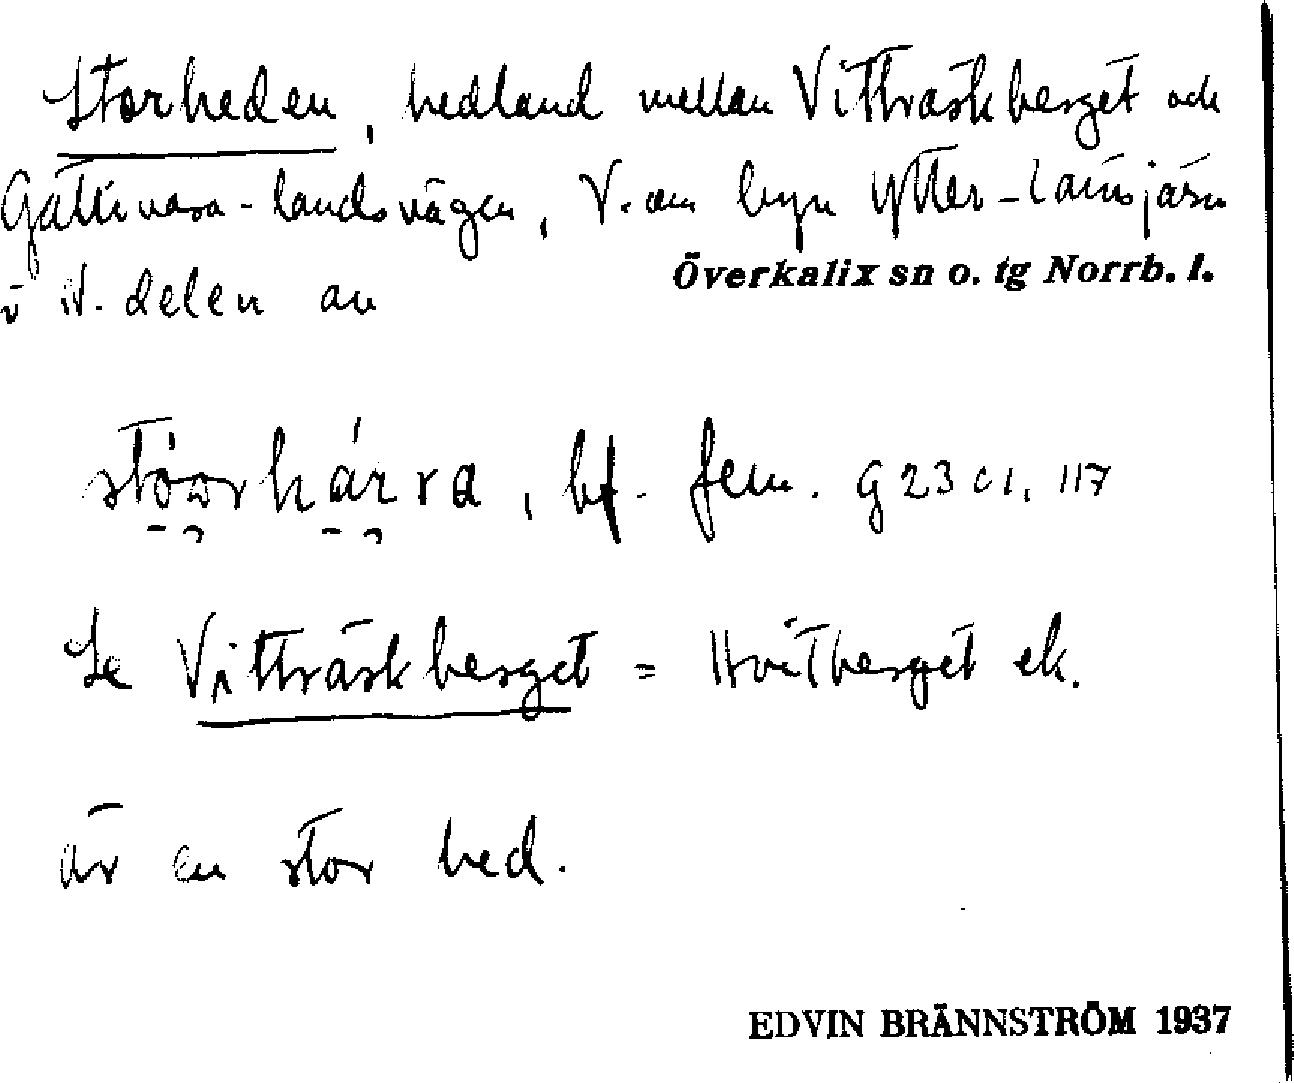 Storheden, hedland mellan Vitträskberget och
Gällivara-landsvägen, V. om byn Ytter-Lansjärv
Överkalix sn o. tg Norrb. l.
i N. delen av
stóorhárra, bf. fem. g 23 c 1, 117
Se Vitträskberget = Hvitberget ek.
är en stor hed.
EDVIN BRÄNNSTRÖM 1937